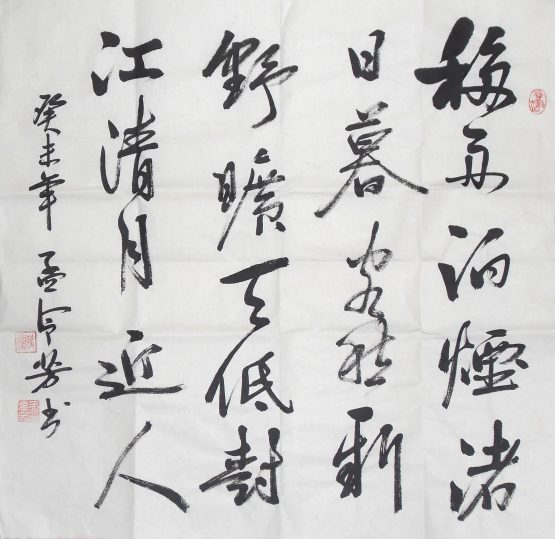 移舟泊煙渚
日暮客愁新
野曠天低樹
江清月近人
癸未年 孟令芳书